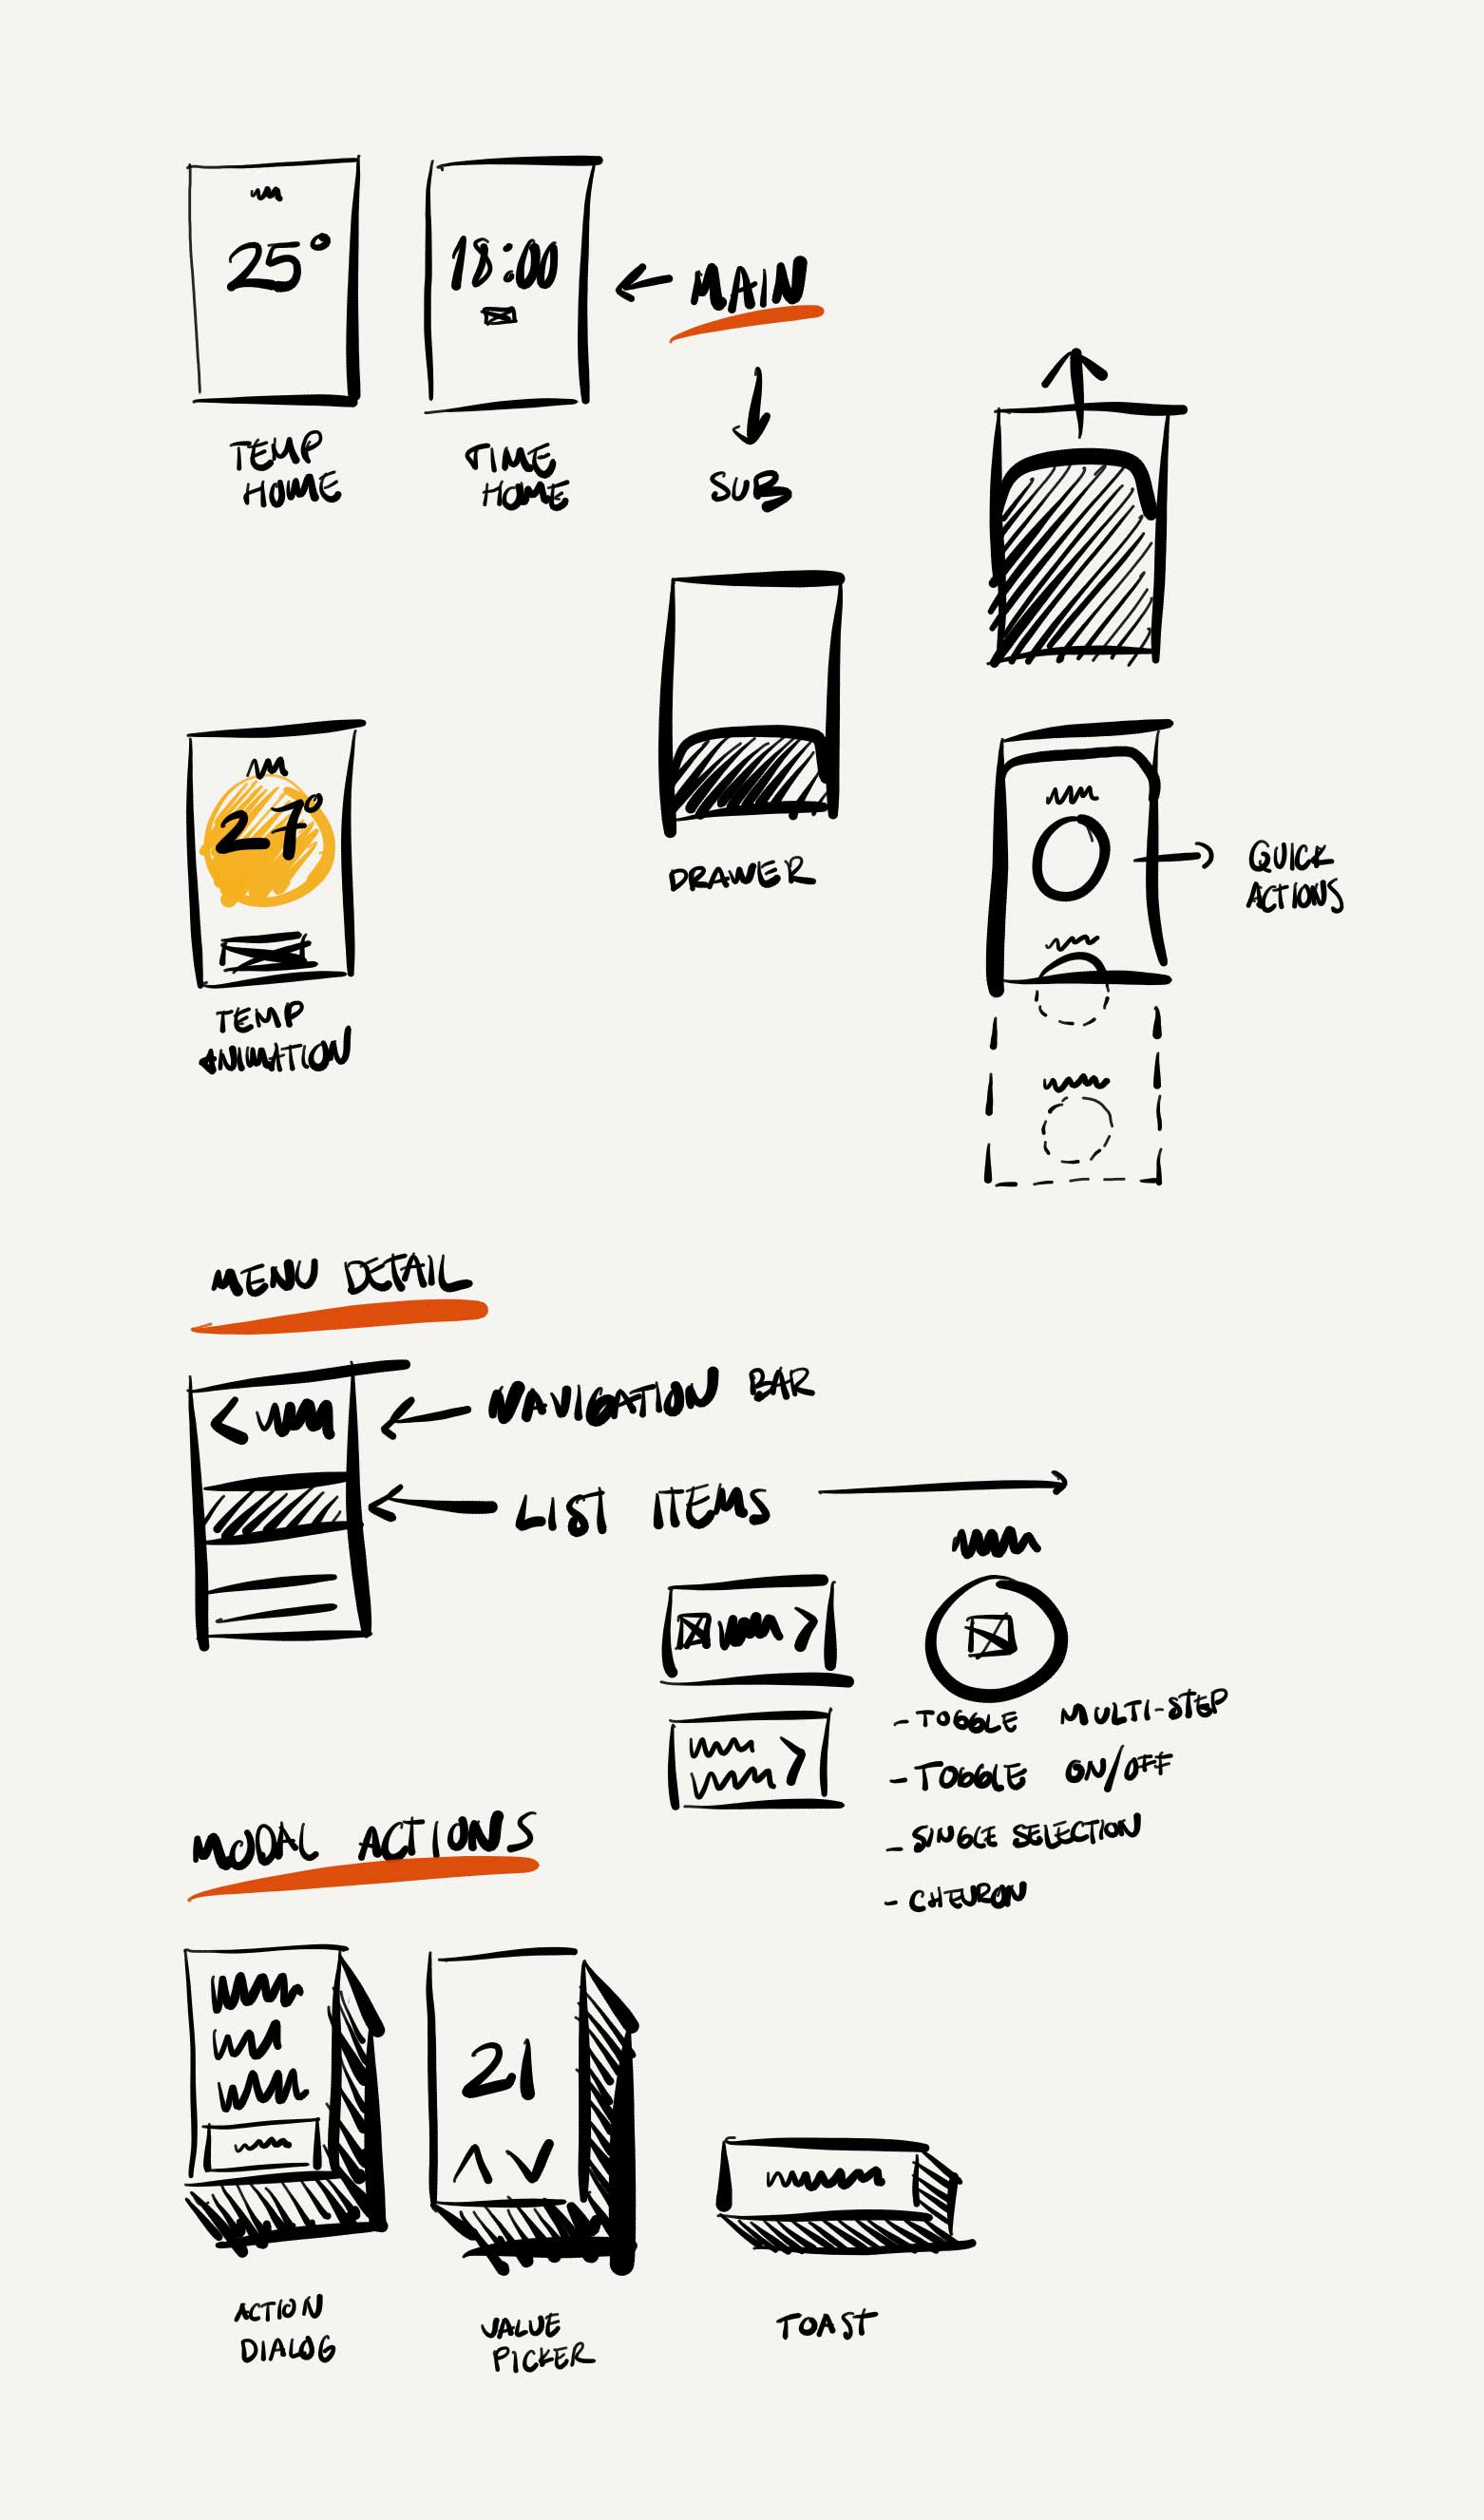 25°
18:00
MAIN
TEMP
HOME
TIME
HOME
SUB
27°
DRAWER
QUICK
ACTIONS
TEMP
ANIMATION
MENU DETAIL
NAVIGATION BAR
LIST ITEMS
- TOGGLE MULTI-STEP
- TOGGLE ON/OFF
- SINGLE SELECTION
- CHEVRON
MODAL ACTIONS
21
ACTION
DIALOG
VALUE
PICKER
TOAST